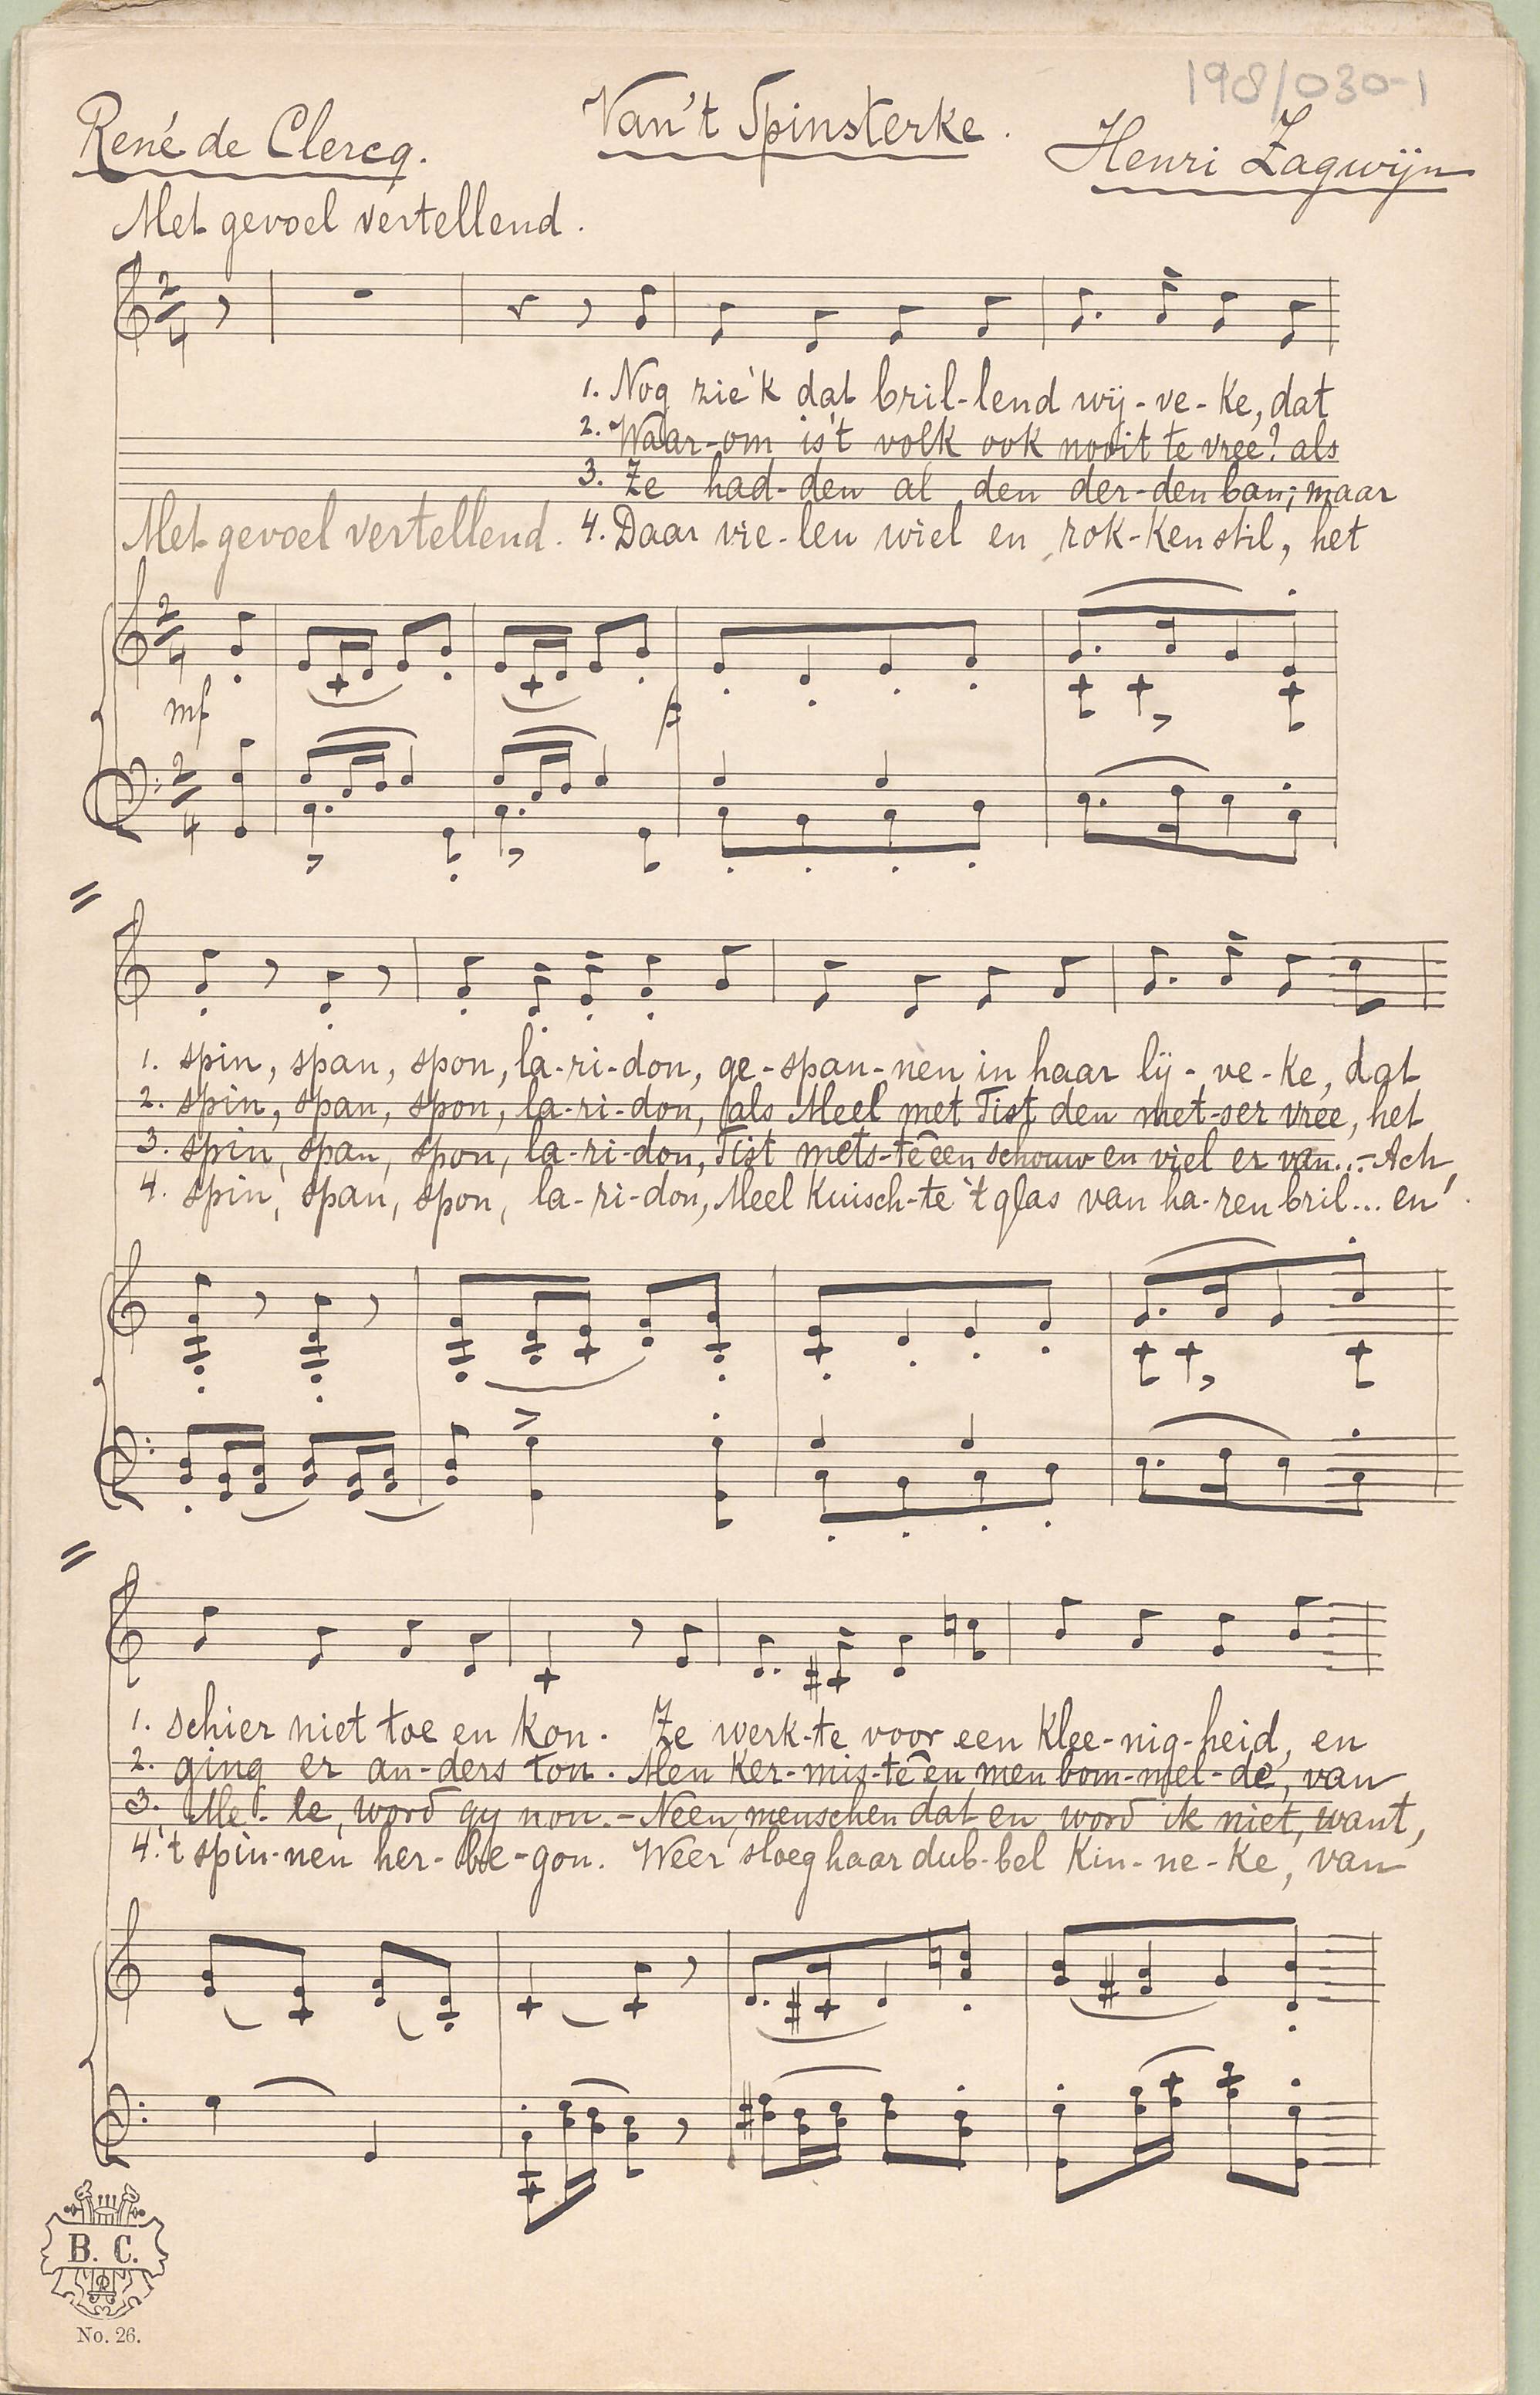 198/030-1
Van't Spinsterke.
René de Clercq.
Henri Zagwijn
Met gevoel vertellend.
1. Nog zie'k dat bril-lend wij-ve-ke, dat
2. Waar-om is't volk ook nooit te vree? als
3. Ze had-den al den der-den ban; maar
Met gevoel vertellend.
4. Daar vie-len wiel en rok-ken stil, het
mf
p
1. spin, span, spon, la-ri-don, ge-span-nen in haar lij-ve-ke, dat
2. spin, span, spon, la-ri-don, als Meel met Tist den met-ser vree, het
3. spin, span, spon, la-ri-don, Tist mets-te een schouw en viel er van...- Ach,
4. spin, span, spon, la-ri-don, Meel kuisch-te 't glas van ha-ren bril... en
1. schier niet toe en kon. Ze werk-te voor een klee-nig-heid, en
2. ging er an-ders ton. Men ker-mis-te en men bom-mel-de, van
3. Me-le, word gy non.- Neen, menschen dat en word ik niet, want,
4. 't spin-nen her-be-gon. Weer sloeg haar dub-bel kin-ne-ke, van
B. C.
No. 26.